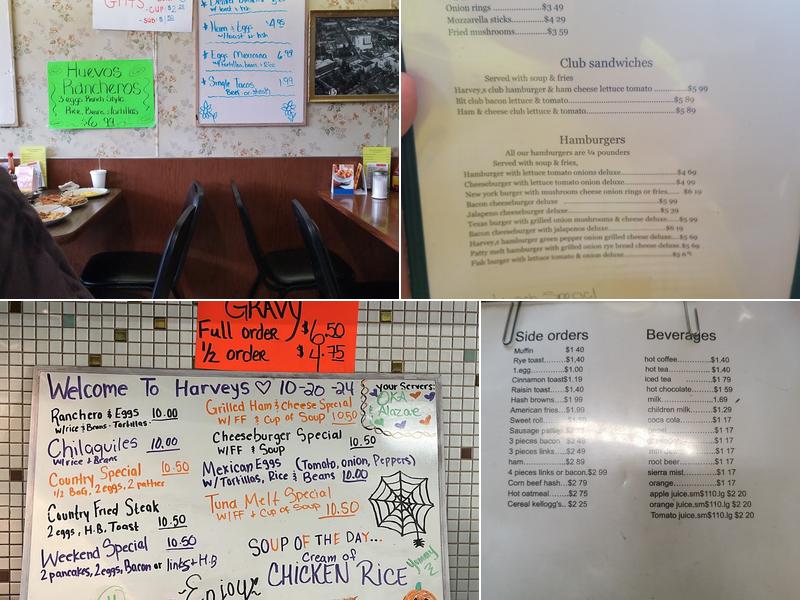 GRITS
- CUP - $2.
- BOWL
Huevos
Rancheros
3 eggs Ranch Style
Rice, Beans & Tortillas
$6.99
w/ toast or hsh
* Ham & Eggs $4.95
w/Toast or hsh
* Eggs Mexicana 6.99
w/Tortillas, beans & Rice
* Single Tacos 1.99
Beef or steak
Onion rings...............$3 49
Mozzarella sticks...............$4 29
Fried mushrooms...............$3 59
Club sandwiches
Served with soup & fries
Harvey,s club hamburger & ham cheese lettuce tomato ...............$5 99
Blt club bacon lettuce & tomato...............$5 89
Ham & cheese club lettuce & tomato...............$5 89
Hamburgers
All our hamburgers are ¼ pounders
Served with soup & fries,
Hamburger with lettuce tomato onions deluxe...............$4 69
Cheeseburger with lettuce tomato onion deluxe...............$4 99
New york burger with mushroom cheese onion rings or fries..... $6 19
Bacon cheeseburger deluxe ...............$5 99
Jalapeno cheeseburger deluxe...............$5 29
Texas burger with grilled onion mushrooms & cheese deluxe.....$5 99
Bacon cheeseburger with jalapenos deluxe...............$6 19
Harvey,s hamburger green pepper onion grilled cheese deluxe....$5 69
Patty melt hamburger with grilled onion rye bread cheese deluxe.$5 69
Fish burger with lettuce tomato & onion deluxe...............$5
Special
GRAVY
Full order $6.50
1/2 order $4.75
Welcome To Harveys ♡ 10-20-24
your Servers:
OKA
&
Alazae
Ranchero & Eggs 10.00
w/rice & Beans - Tortillas -
Chilaquiles 10.00
w/ rice & Beans
Country Special 10.50
1/2 B&G, 2 eggs, 2 patties
Country Fried Steak
2 eggs, H.B. Toast 10.50
Weekend Special 10.50
2 pancakes, 2 eggs, Bacon or links & H.B
Grilled Ham & Cheese Special
w/FF & Cup of Soup 10.50
Cheeseburger Special
w/FF & Soup 10.50
Mexican Eggs (Tomato, onion, Peppers)
w/Tortillas, Rice & Beans 10.00
Tuna Melt Special
w/FF & Cup of Soup 10.50
SOUP OF THE DAY...
Cream of
CHICKEN RICE
Yummy
Enjoy!
Side orders
Muffin $1 40
Rye toast.......$1,40
1.egg..........$1.00
Cinnamon toast$1.19
Raisin toast....$1.40
Hash browns...$1.99
American fries...$1,99
Sweet roll
Sausage
3 pieces bacon $2 49
3 pieces links...$2.49
ham.............$2.89
4 pieces links or bacon.$2 99
Corn beef hash...$2.79
Hot oatmeal.....$2 75
Cereal kellogg's.. $2 25
Beverages
hot coffee..........$1,40
hot tea.............$1.40
iced tea............$1 79
hot chocolate.......$1 59
milk................1.69
children milk.......$1.29
coca cola...........$1 17
$1 17
$1 17
$1 17
root beer...........$1 17
sierra mist.........$1 17
orange..............$1 17
apple juice.sm$110.lg $2 20
orange juice.sm$110.lg $2 20
Tomato juice.sm$110.lg $2 20